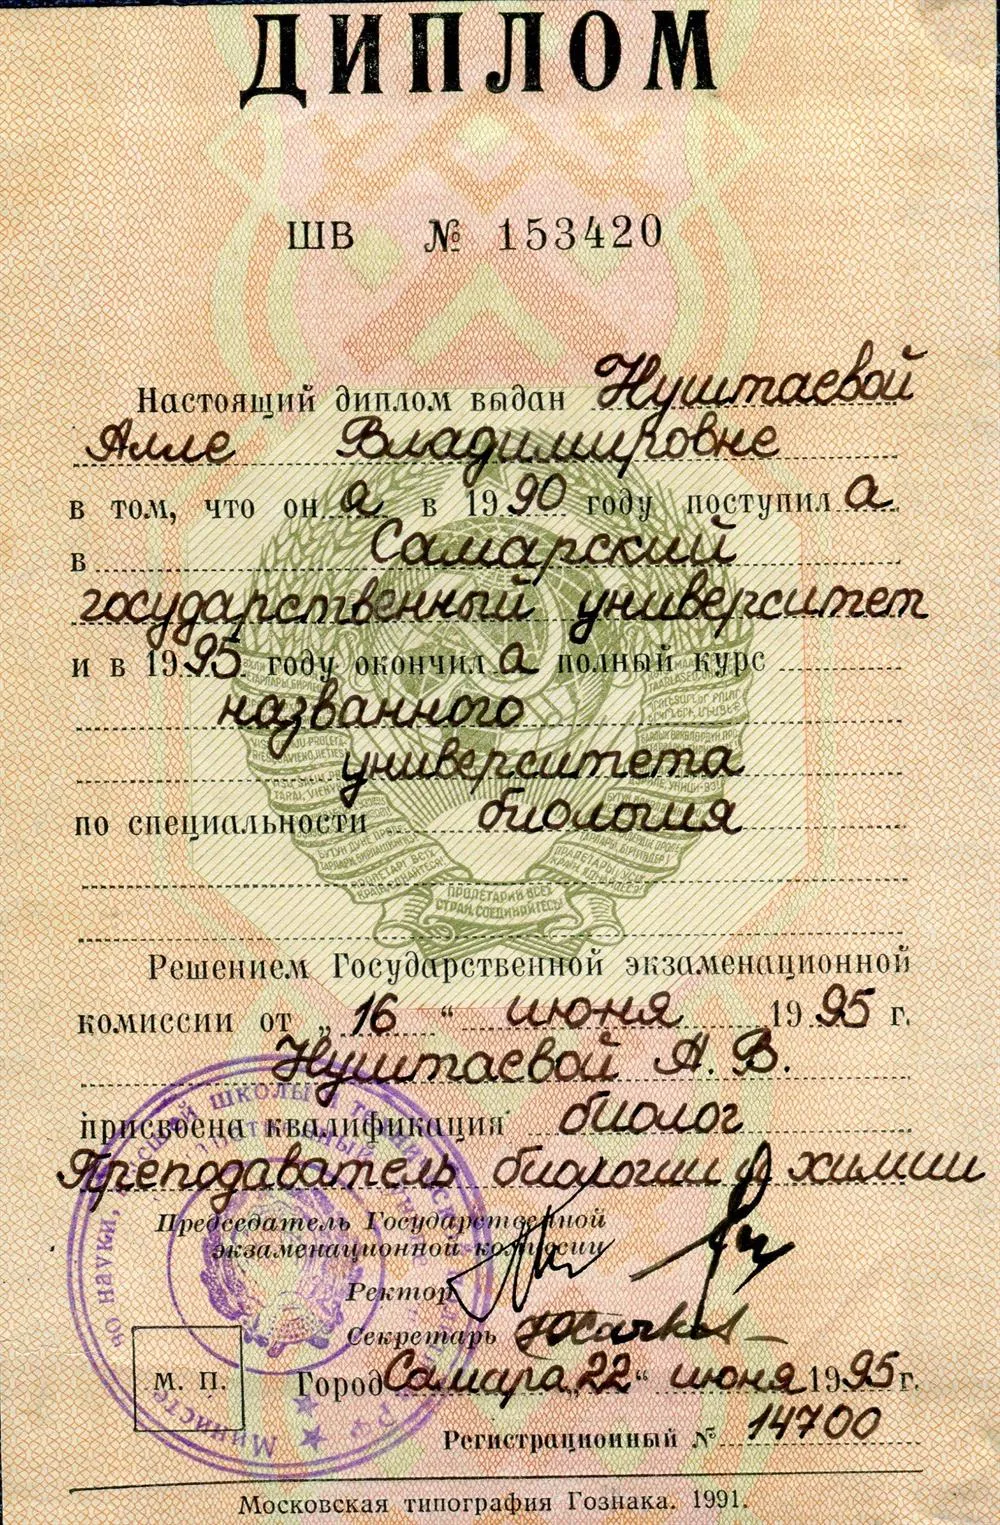 ДИПЛОМ
ШВ № 153420
Настоящий диплом выдан Нуштаевой
Алле Владимировне
в том, что он а в 1990 году поступил а
в Самарский
государственный университет
и в 1995 году окончил а полный курс
названного
университета
по специальности биология
ПРОЛЕТАРИИ ВСЕХ
СТРАН, СОЕДИНЯЙТЕСЬ!
Решением Государственной экзаменационной
комиссии от „16“ июня 1995 г.
Нуштаевой А. В.
присвоена квалификация биолог
Преподаватель биологии и химии
Председатель Государственной
экзаменационной комиссии
Ректор
Секретарь
М. П.
Город Самара „22“ июня 1995 г.
Регистрационный № 14700
Московская типография Гознака. 1991.